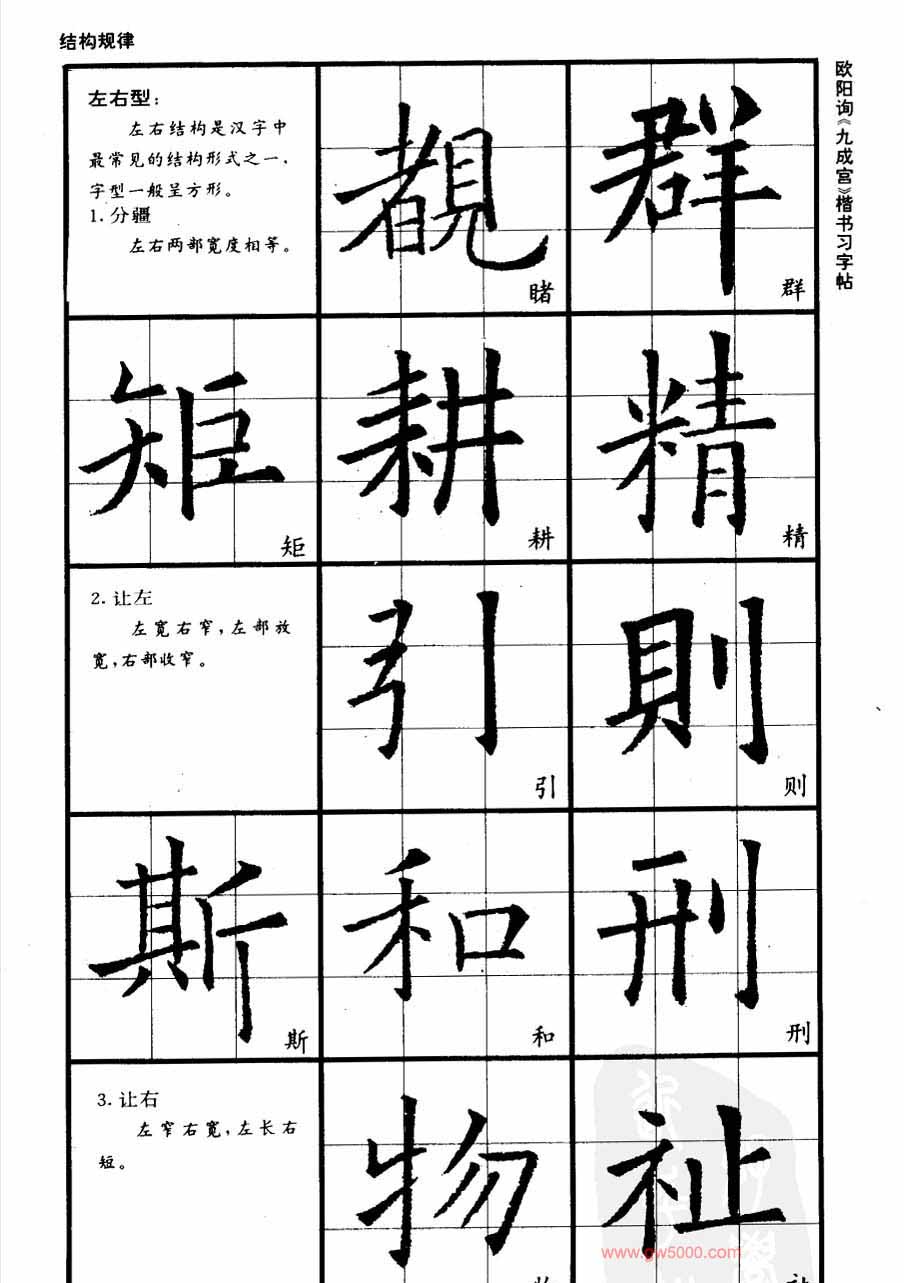 结构规律
欧阳询《九成宫》楷书习字帖
左右型：
左右结构是汉字中
最常见的结构形式之一，
字型一般呈方形。
1. 分疆
左右两部宽度相等。
覩
睹
群
群
矩
矩
耕
耕
精
精
2. 让左
左宽右窄，左部放
宽，右部收窄。
引
引
則
则
斯
斯
和
和
刑
刑
3. 让右
左窄右宽，左长右
短。
物
祉
www.gw5000.com